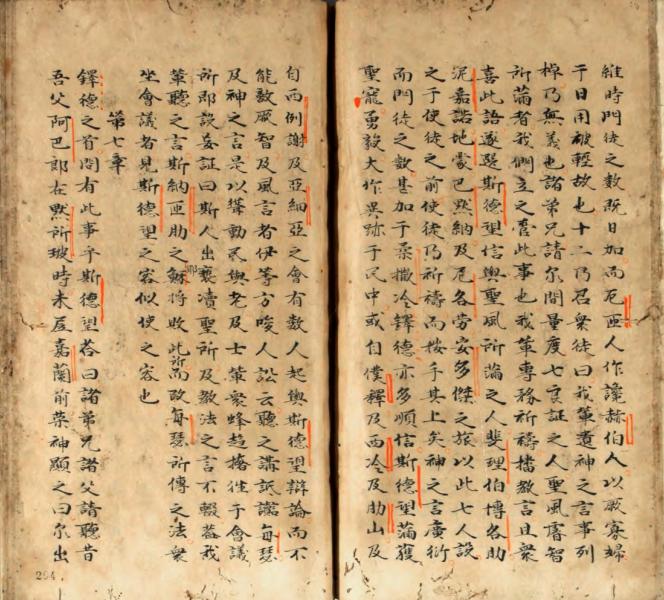 維時門徒之數既日加而厄匝人作讒赫伯人以厥寡婦
于日用被輕故也十二乃召衆徒曰我輩遺神之言事列
棹乃無義也諸弟兄請尔間量度七良証之人聖風睿智
所滿者我們立之管此事也我輩專務祈禱播教言且衆
喜此語遂選斯德望信與聖風所滿之人斐理伯博各肋
泥嘉諾地蒙巴默納及厄各劳安多傑之旅以此七人設
之于使徒之前使徒乃祈禱而按手其上矣神之言廣衍
而門徒之数甚加于柔撒冷鐸德亦多順信斯德望滿獲
聖寵勇毅大作異跡于民中或自僕釋及西冷及肋山及
自西例謝及亞細亞之會有数人起與斯德望辯論而不
能敵厥智及風言者伊等方唆人訟云聽之講詆讟每瑟
及神之言是以聳動民與老及士輩衆蜂趋擒徃于會議
所即設妄証曰斯人出褻凟聖所及教法之言不輟葢我
輩聽之言斯納匝肋之耶穌將敗此所而改每瑟所傳之法衆
坐會議者見斯德望之容似使之容也
第七章
鐸德之首問有此事乎斯德望荅曰諸弟兄諸父請聽昔
吾父阿巴郎在默所玻時未居嘉蘭前榮神顯之曰尔出
294.